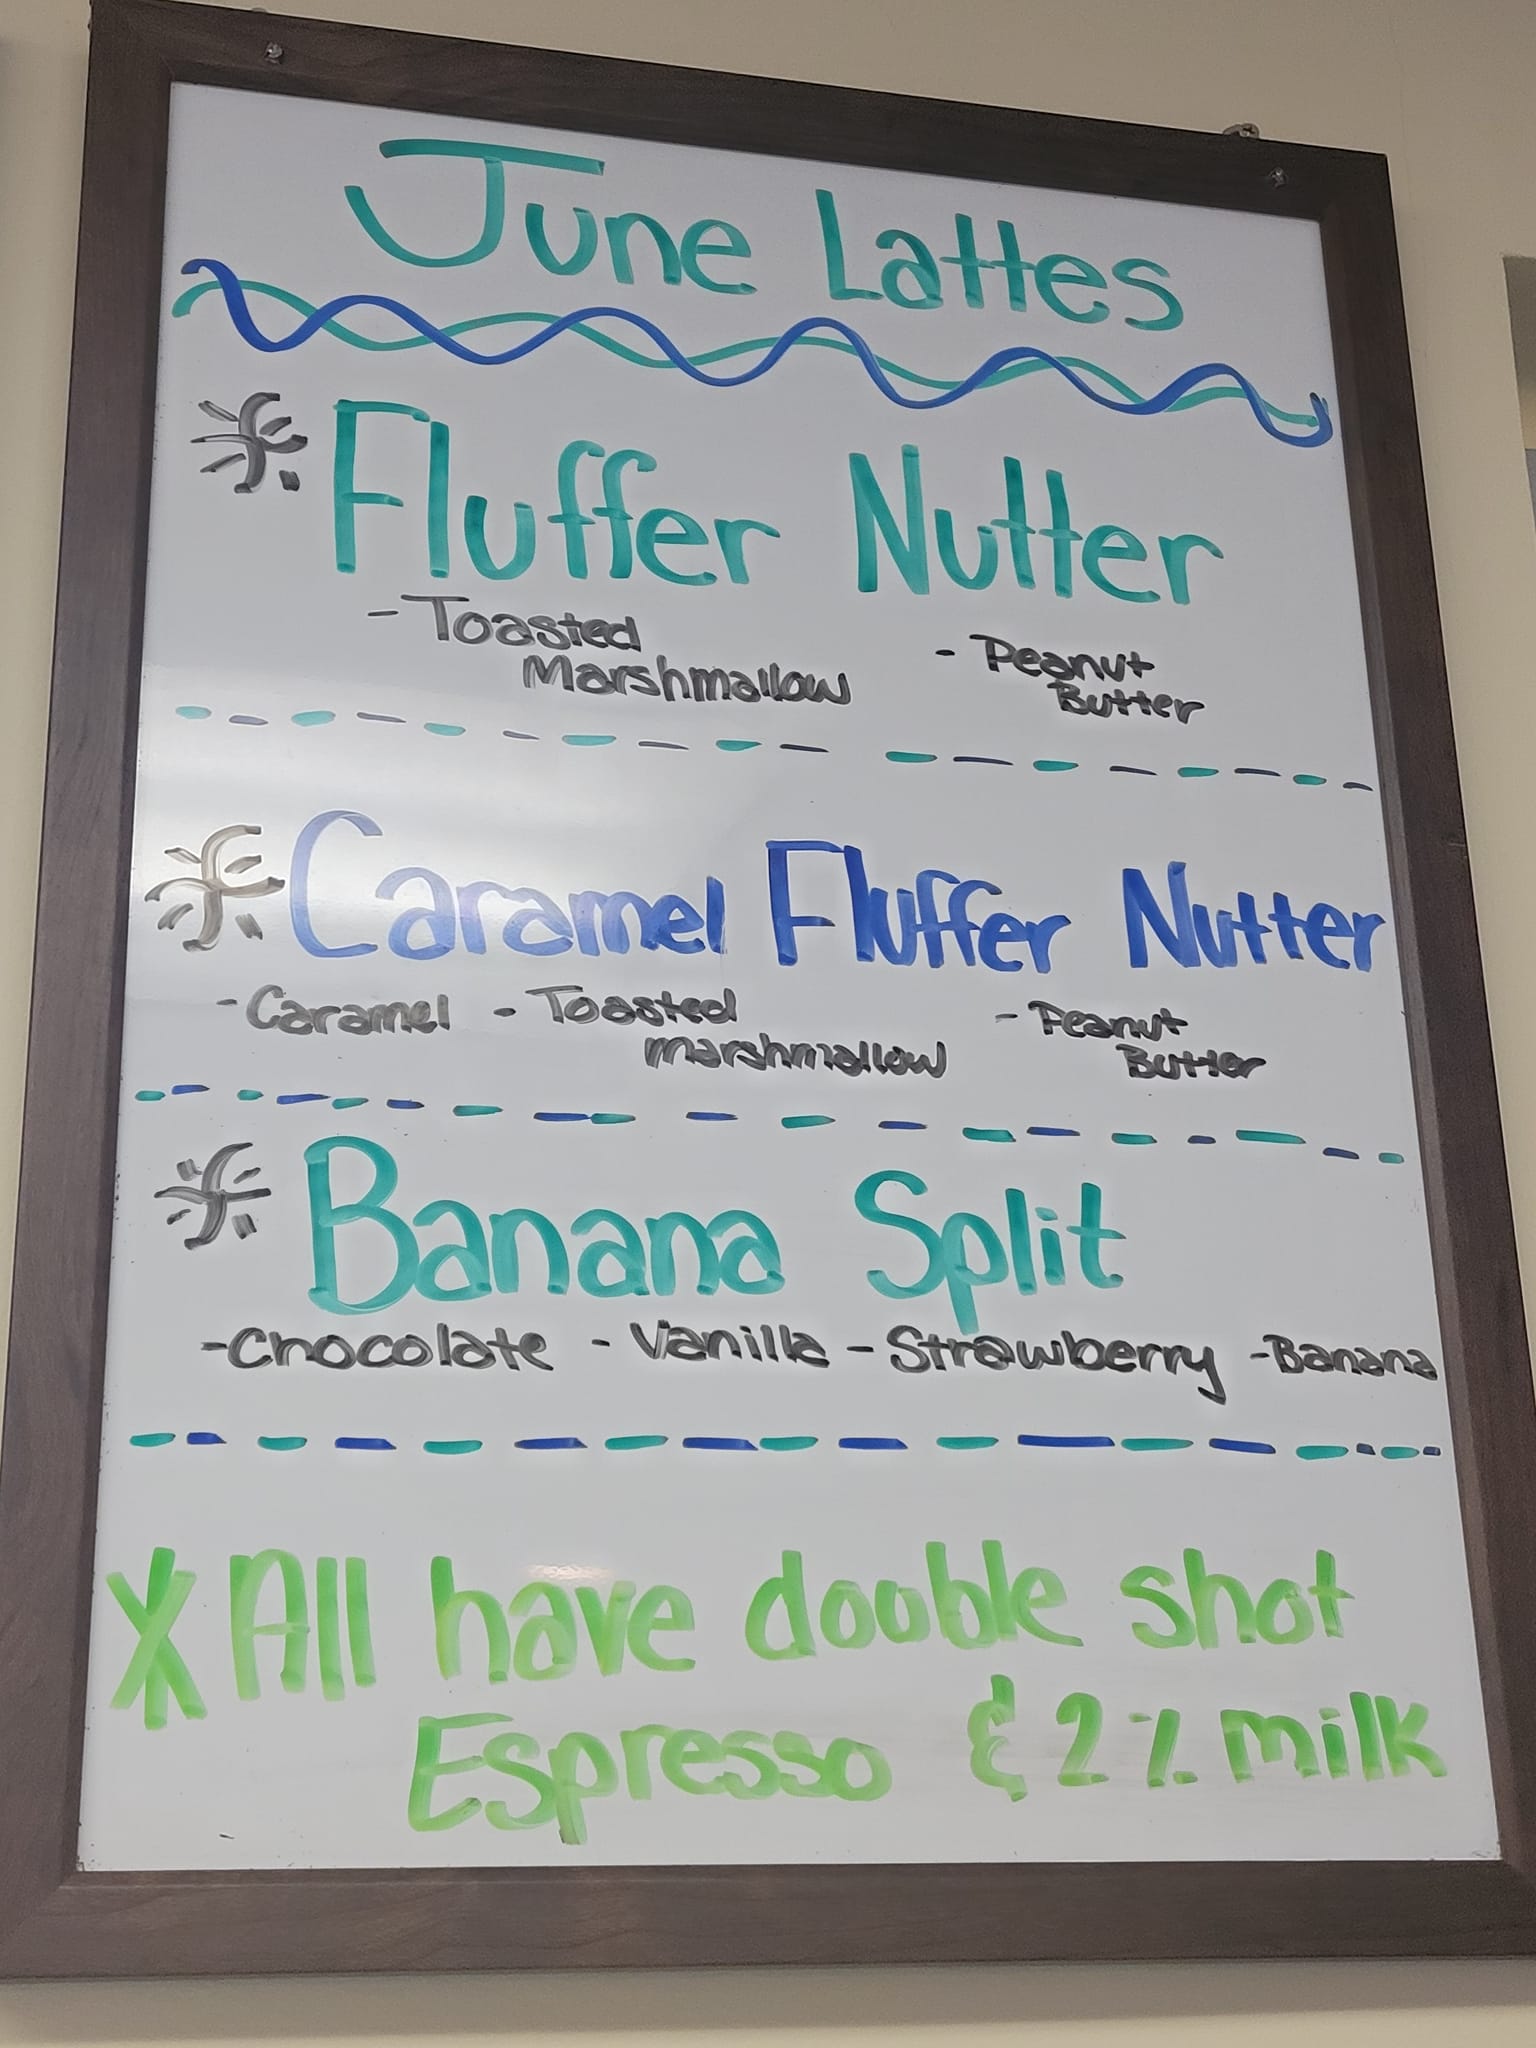 June Lattes
Fluffer Nutter
- Toasted Marshmallow - Peanut Butter
Caramel Fluffer Nutter
- Caramel - Toasted marshmallow - Peanut Butter
Banana Split
- Chocolate - Vanilla - Strawberry - Banana
* All have double shot
Espresso & 2% milk